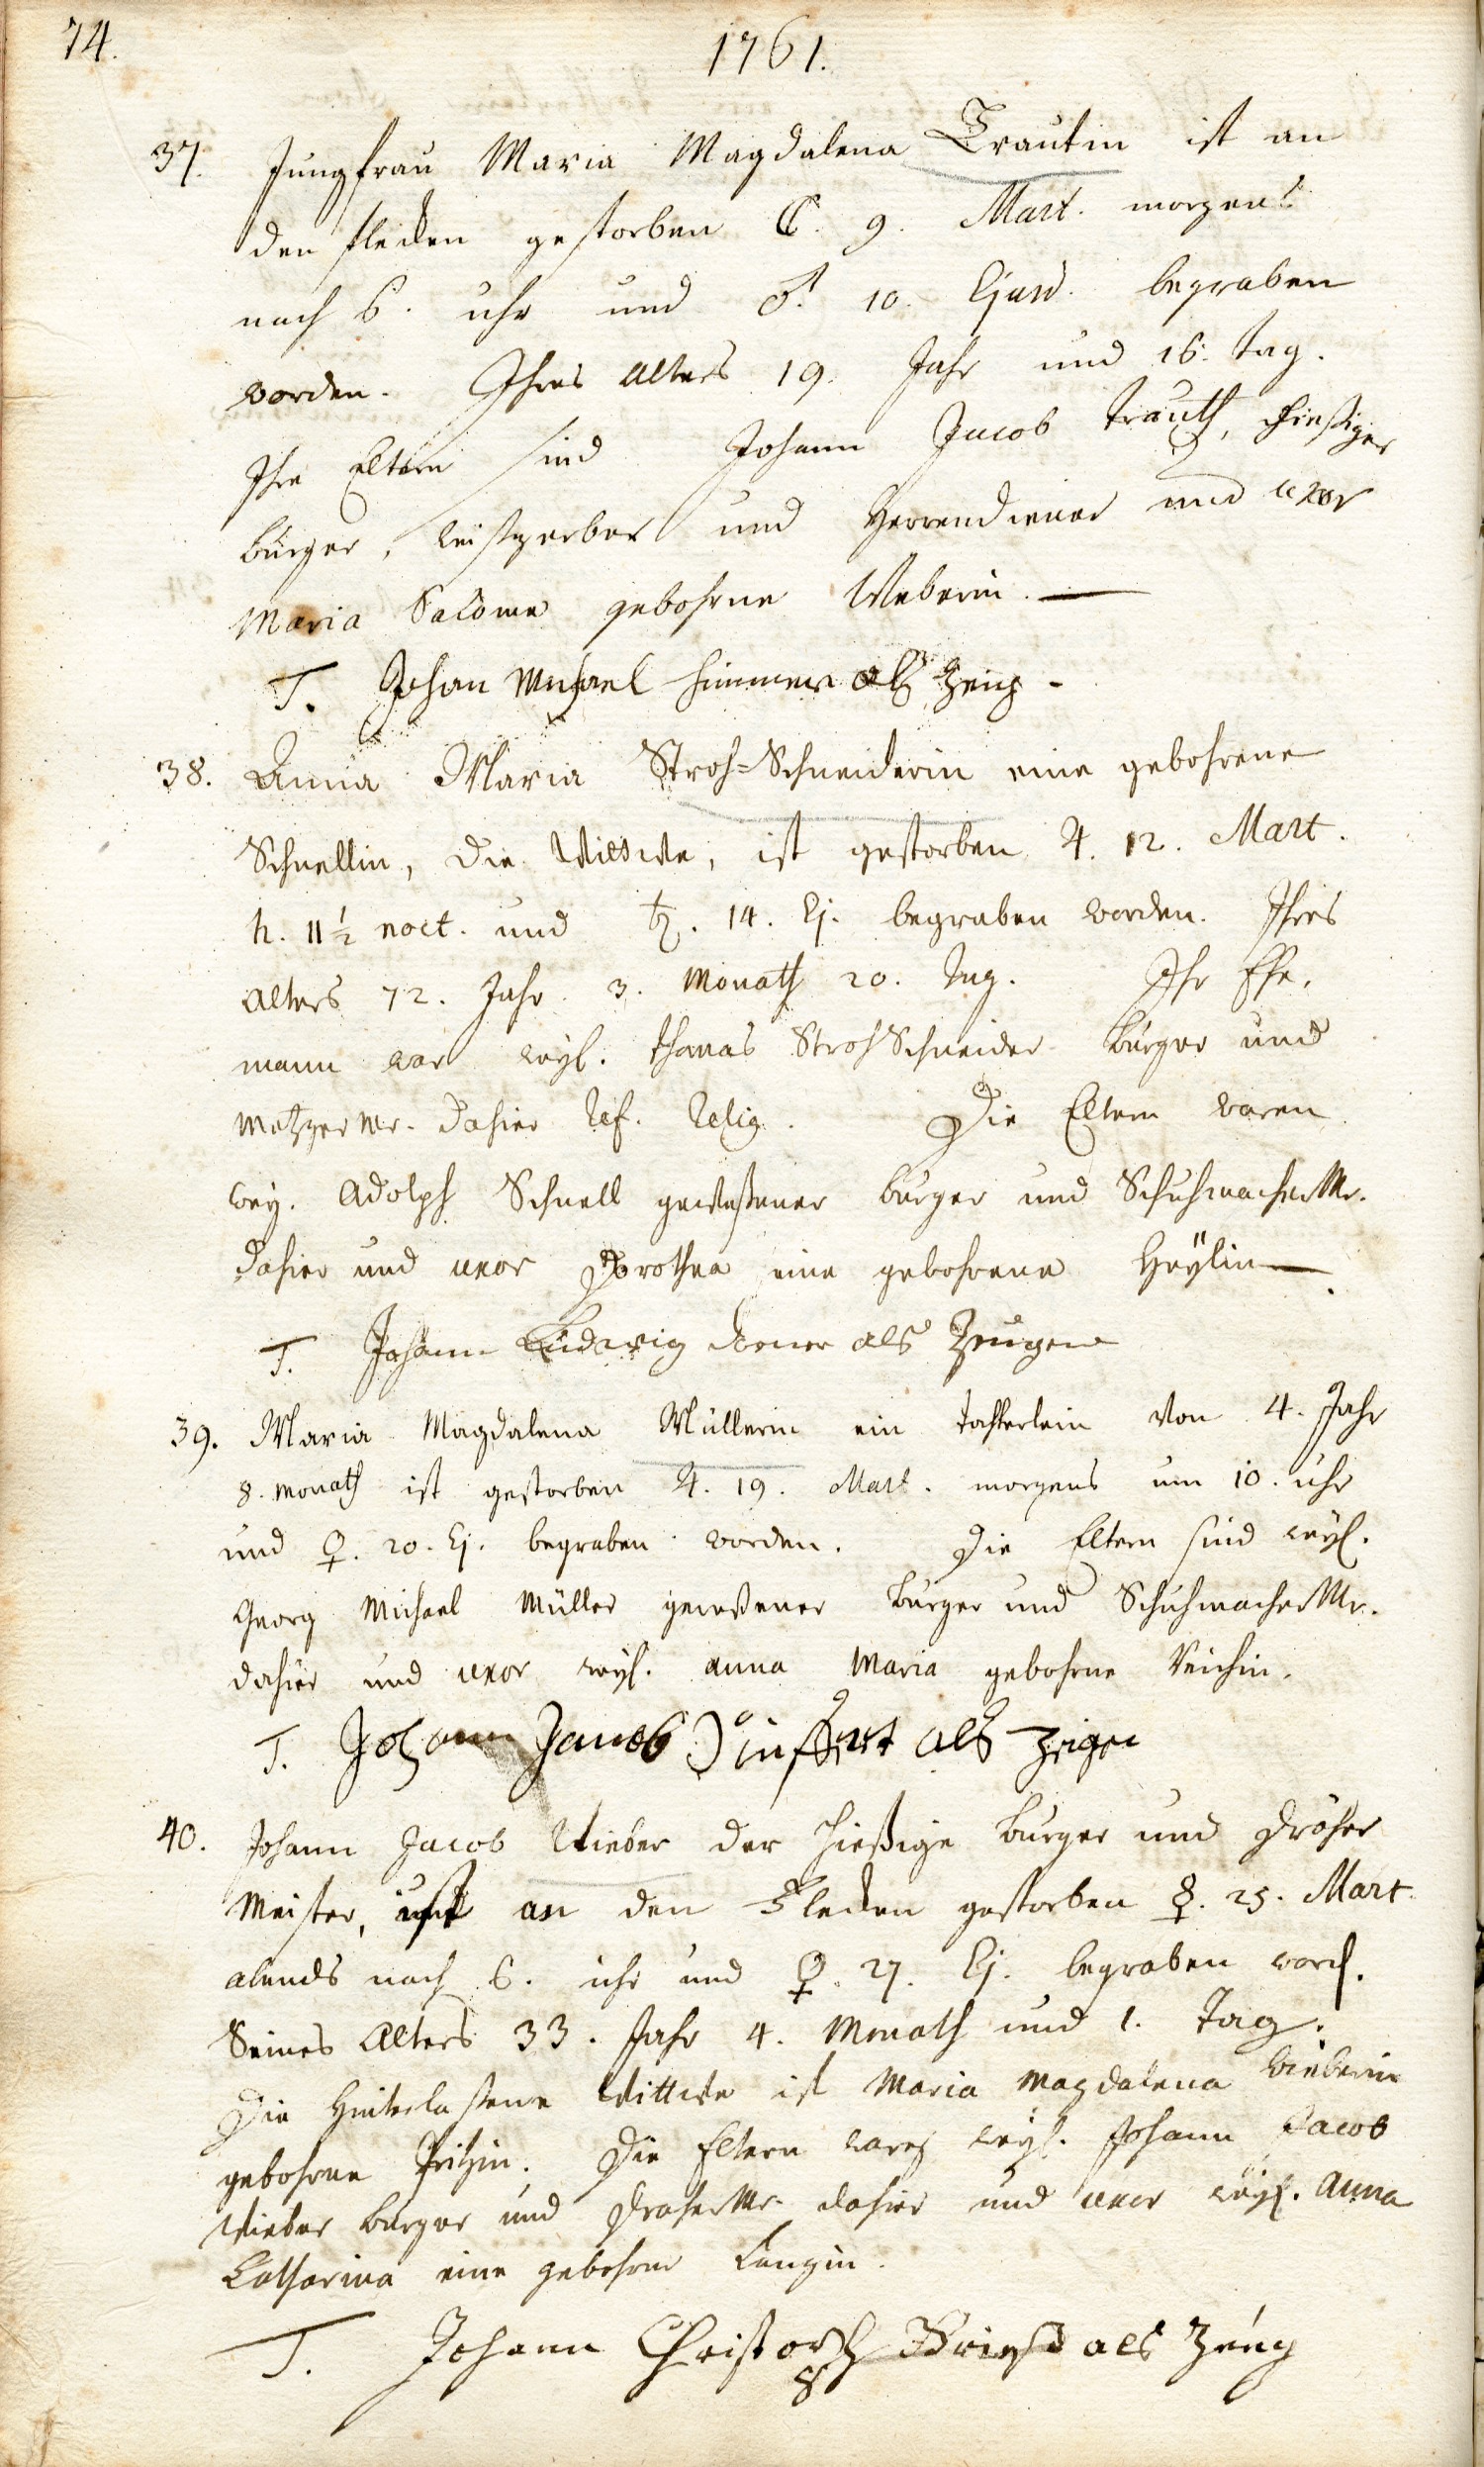 74.
1761.
37. Jungfrau Maria Magdalena Trautin ist an
den flecken gestorben ☾. 9. Mart. morgens
nach 6. uhr und ♂. 10. Ejusd. begraben
worden. Ihres Alters 19. Jahr und 16. tag.
Ihre Eltern sind Johann Jacob Trauth, hiesiger
burger, weißgerber und Herrendiener und uxor
Maria Salome gebohrne Weberin.
T. Johan Michael Himmer als Zeug.
38. Anna Maria Stroh=Schneiderin eine gebohrene
Schnellin, die Wittwe, ist gestorben ♃. 12. Mart.
h. 11½ noct. und ♄. 14. Ej. begraben worden. Ihres
Alters 72. Jahr 3. Monath 20. Tag. Ihr Ehe,
mann war weyl. Thomas Stroh Schneider burger und
Metzger Mr. dahier Ref. Relig. Die Eltern waren
wey. Adolph Schnell gewesener burger und Schuhmacher Mr.
dahier und uxor Dorothea eine gebohrene Heylin.
T. Johann Ludwig als Zeugen
39. Maria Magdalena Müllerin ein töchterlein von 4. Jahr
8. Monath ist gestorben ♃. 19. Mart. morgens um 10. uhr
und ♀. 20. Ej. begraben worden. Die Eltern sind weyl.
Georg Michael Müller gewesener burger und Schuhmacher Mr.
dahier und uxor weyl. Anna Maria gebohrne Reichin.
T. Johann Jacob als Zeigen
40. Johann Jacob Wieber der hiesige burger und Dröher
Meister, ist an den Flecken gestorben ☿. 25. Mart.
abends nach 6. uhr und ♀. 27. Ej. begraben word.
Seines Alters 33. Jahr 4. Monath und 1. Tag.
Die Hinterlaßene Wittwe ist Maria Magdalena Wieberin
gebohrne Fritzin. Die Eltern waren weyl. Johann Jacob
Wieber burger und Dreher Mr. dahier und uxor weyl. Anna
Catharina eine gebohrne Langin.
T. Johann Christoph als Zeug